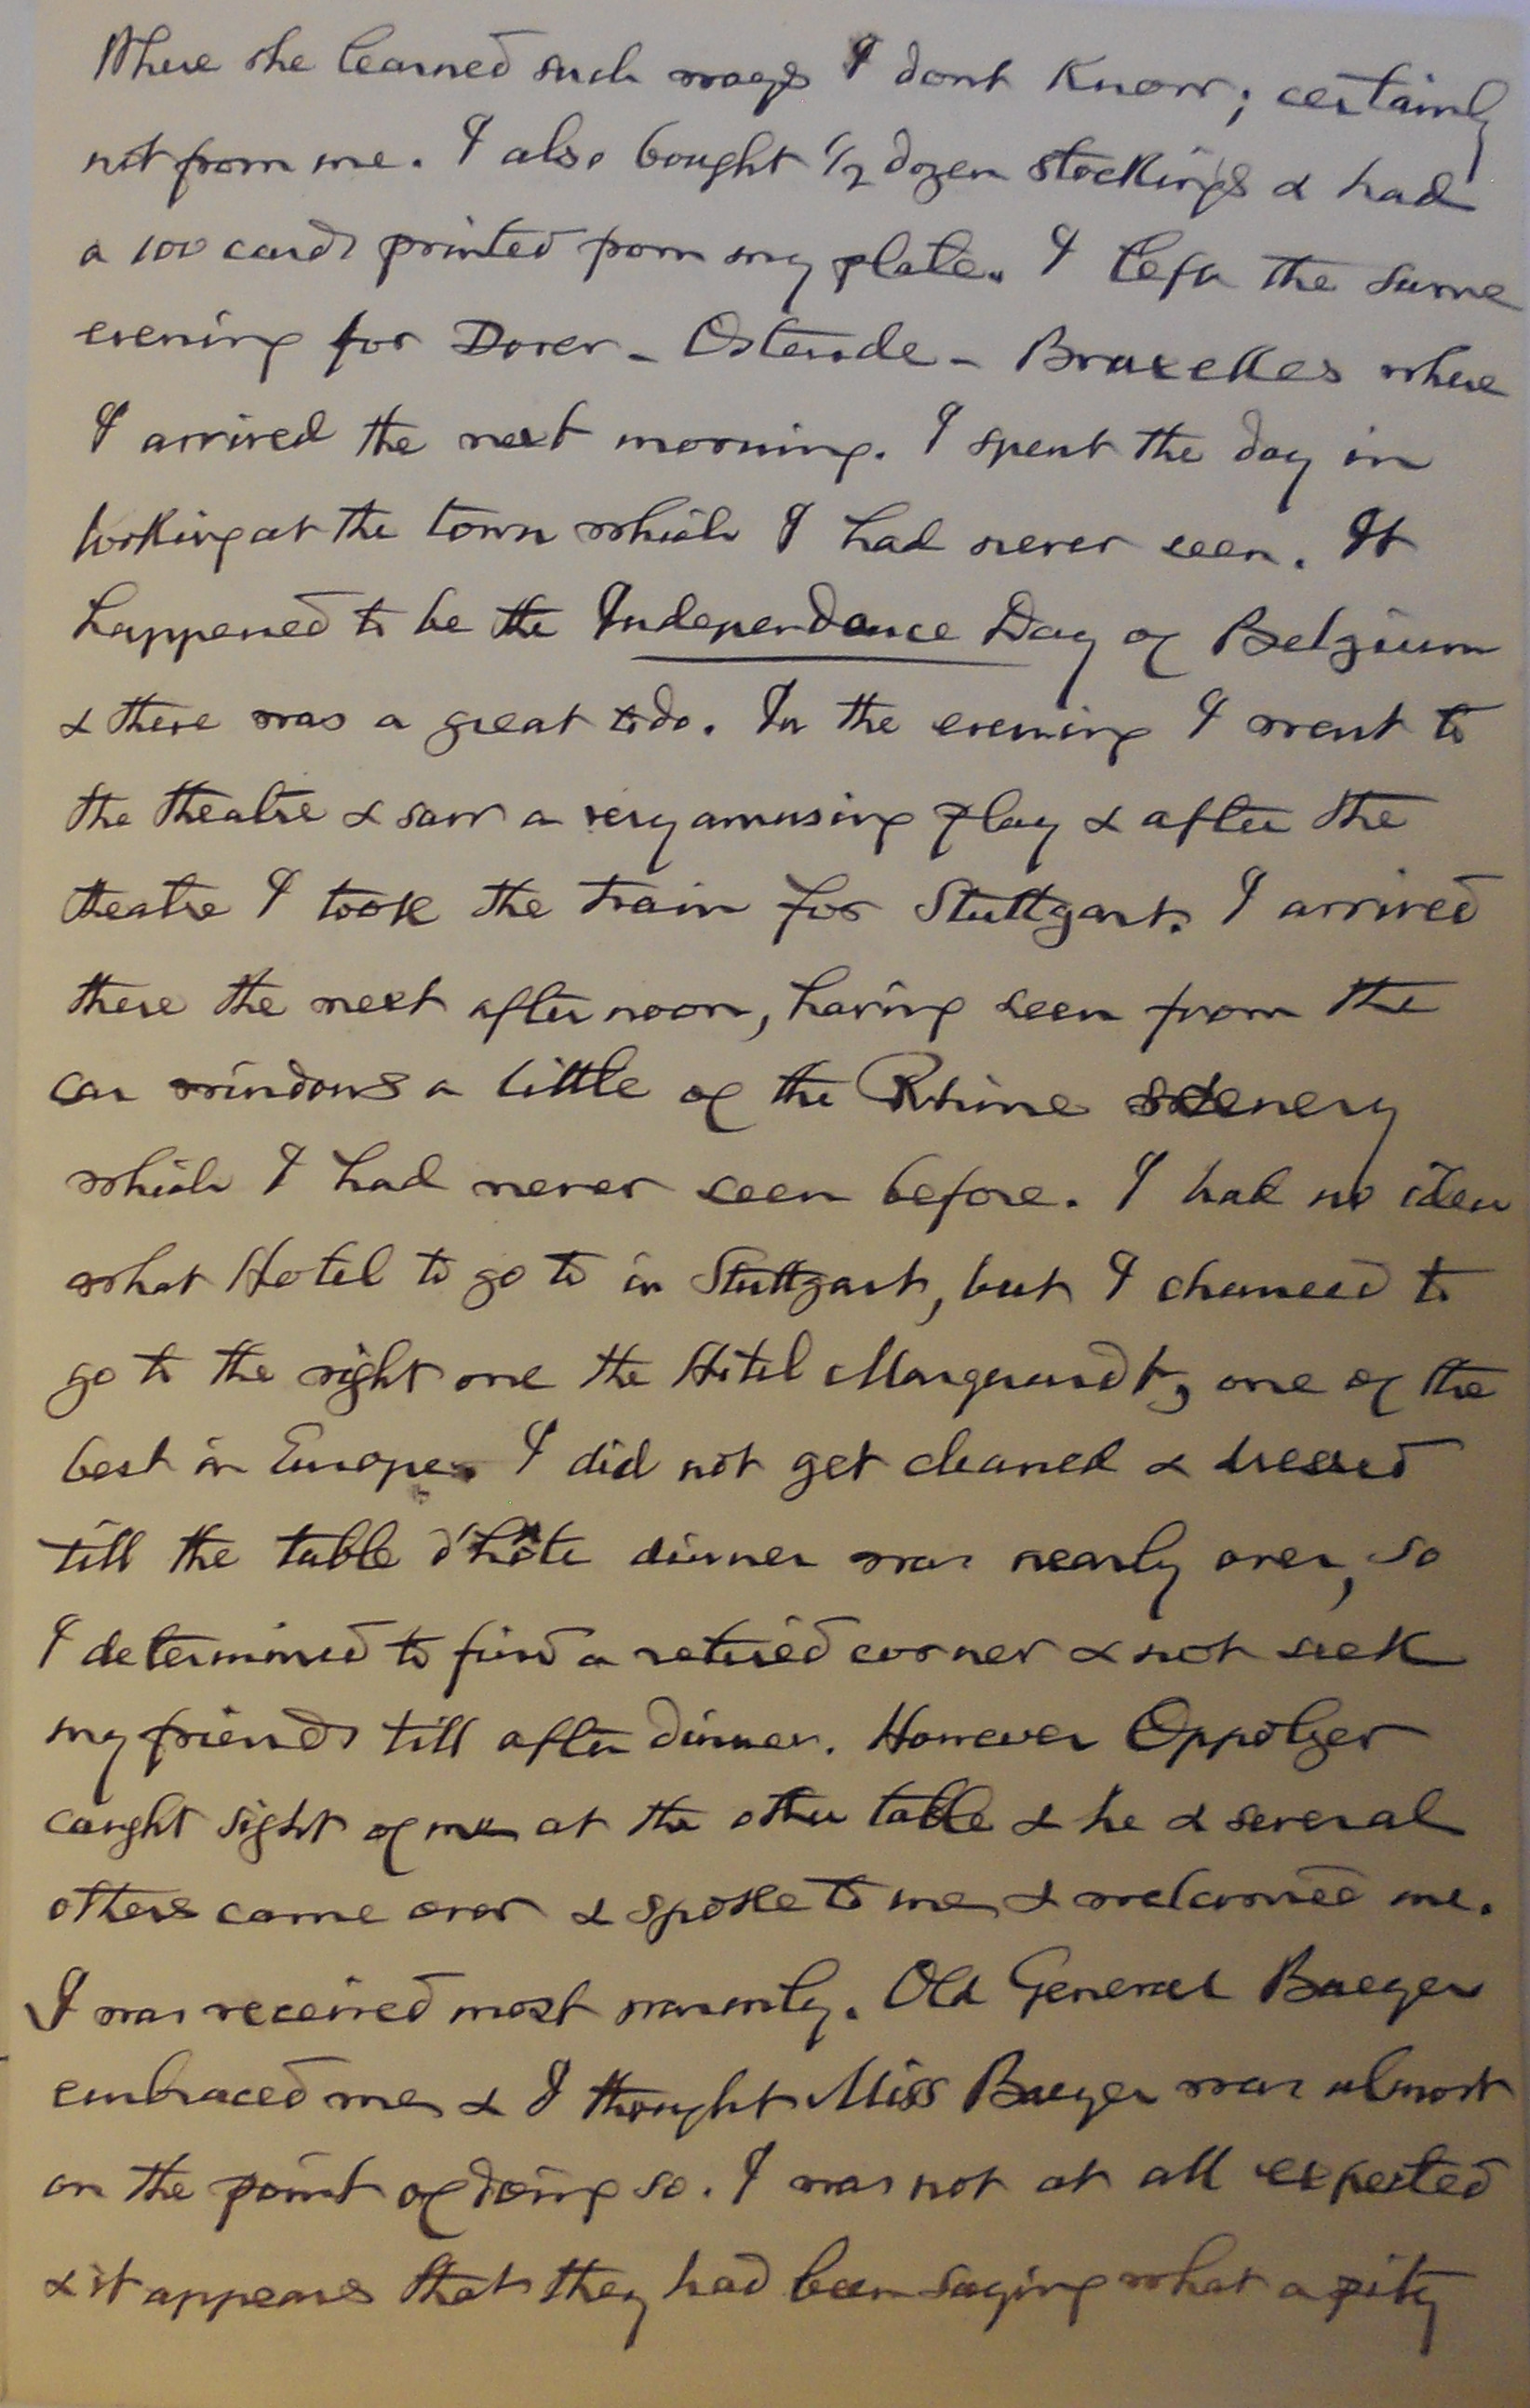 Where she learned such ways I dont Know; certainly
not from me. I also bought 1/2 dozen stockings & had
a 100 cards printed from my plate. I left the same
evening for Dover - Ostende - Bruxelles where
I arrived the next morning. I spent the day in
looking at the town which I had never seen. It
happened to be the Independance Day of Belgium
& there was a great todo. In the evening I went to
the theatre & saw a very amusing play & after the
theatre I took the train for Stuttgart. I arrived
there the next afternoon, having seen from the
car windows a little of the Rhine scenery
which I had never seen before. I had no idea
what Hotel to go to in Stuttgart, but I chanced to
go to the right one the Hotel Marquardt, one of the
best in Europe. I did not get cleaned & dressed
till the table d'hôte dinner was nearly over, so
I determined to find a retired corner & not seek
my friends till after dinner. However Oppolzer
caught sight of me at the other table & he & several
others came over & spoke to me & welcomed me.
I was received most warmly. Old General Baeyer
embraced me & I thought Miss Baeyer was almost
on the point of doing so. I was not at all expected
& it appears that they had been saying what a pity